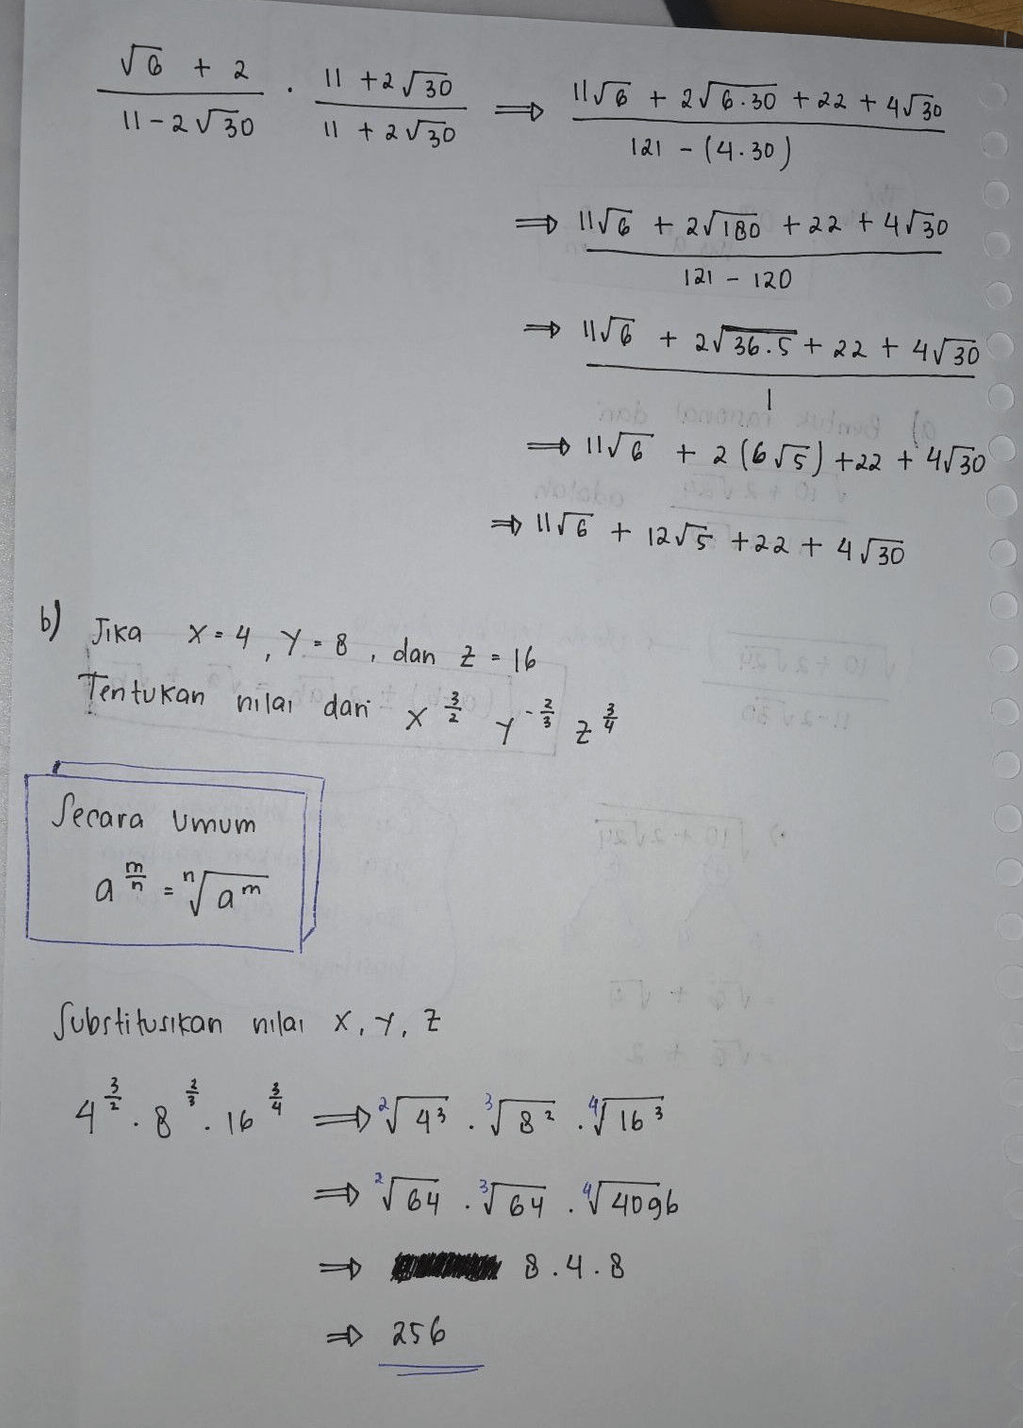 √6 + 2 / 11 - 2√30 . 11 + 2√30 / 11 + 2√30 ⇒ 11√6 + 2√6.30 + 22 + 4√30 / 121 - (4.30)
⇒ 11√6 + 2√180 + 22 + 4√30 / 121 - 120
⇒ 11√6 + 2√36.5 + 22 + 4√30 / 1
⇒ 11√6 + 2(6√5) + 22 + 4√30
⇒ 11√6 + 12√5 + 22 + 4√30
b) Jika X = 4, Y = 8, dan Z = 16
Tentukan nilai dari X^(3/2) Y^(-2/3) Z^(3/4)
Secara Umum
a^(m/n) = ⁿ√a^m
Substitusikan nilai X, Y, Z
4^(3/2) . 8^(2/3) . 16^(3/4) ⇒ ²√4³ . ³√8² . ⁴√16³
⇒ ²√64 . ³√64 . ⁴√4096
⇒ 8.4.8
⇒ 256